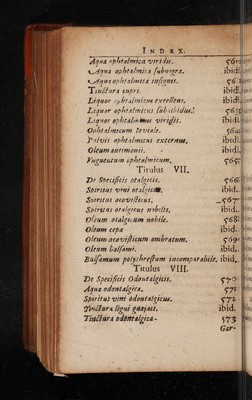 INDEX.
Aqua ophtalmica viridis. 560
Aqua ophtalmica subnigra. ibid.
Aqua ophtalmica insignis. 561
Tinctura cupri. ibid.
Liquor ophtalmicus excellens. ibid.
Liquor ophtalmicus subalbidus.
Liquor ophtalmicus viridis. ibid.
Ophtalmicum Ioviale.
Pulvis ophtalmicus externus. ibid.
Oleum antimonii. ibid.
Vnguentum ophtalmicum. 565
Titulus VII.
De Specificis otalgicis. 566
Spiritus vini otalgicus. ibid.
Spiritus acovisticus. 567
Spiritus otalgicus nobilis. ibid.
Oleum otalgicum nobile. 568
Oleum cepæ ibid.
Oleum acovisticum ambratum. 569
Oleum balsami. ibid.
Balsamum polychrestum incomparabile. ibid.
Titulus VIII.
De Specificis Odontalgicis. 570
Aqua odontalgica. 571
Spiritus vini odontalgicus. 572
Tinctura ligni guajaci. ibid.
Tinctura odontalgica. 573
Gar-